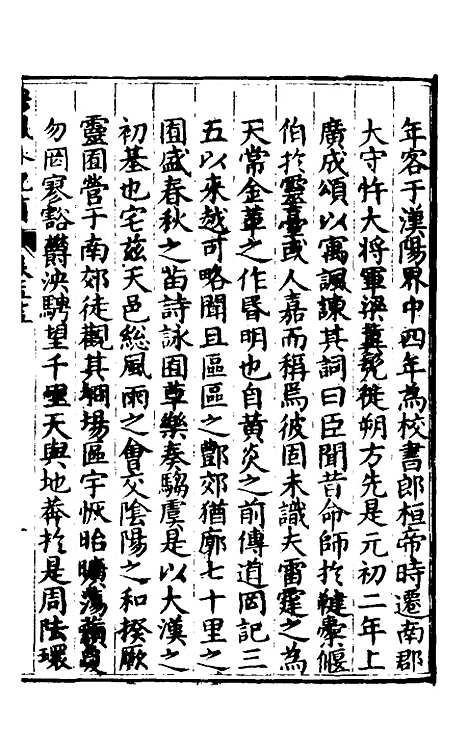 年客于漢陽界中四年為校書郎桓帝時遷南郡
大守忤大将軍梁冀免徙朔方先是元初二年上
廣成頌以寓諷諫其詞曰臣聞昔命師於鞬櫜偃
伯於靈臺或人嘉而稱焉彼固未識夫雷霆之為
天常金革之作昬明也自黄炎之前傳道罔記三
五以来越可略聞且區區之酆郊猶廓七十里之
囿盛春秋之苗詩詠囿草樂奏騶虞是以大漢之
初基也宅兹天邑総風雨之會交隂陽之和揆厥
靈囿營于南郊徒觀其坰場區宇恢胎曠蕩
勿罔寥豁欝泱騁望千里天與地莽於是周阹環